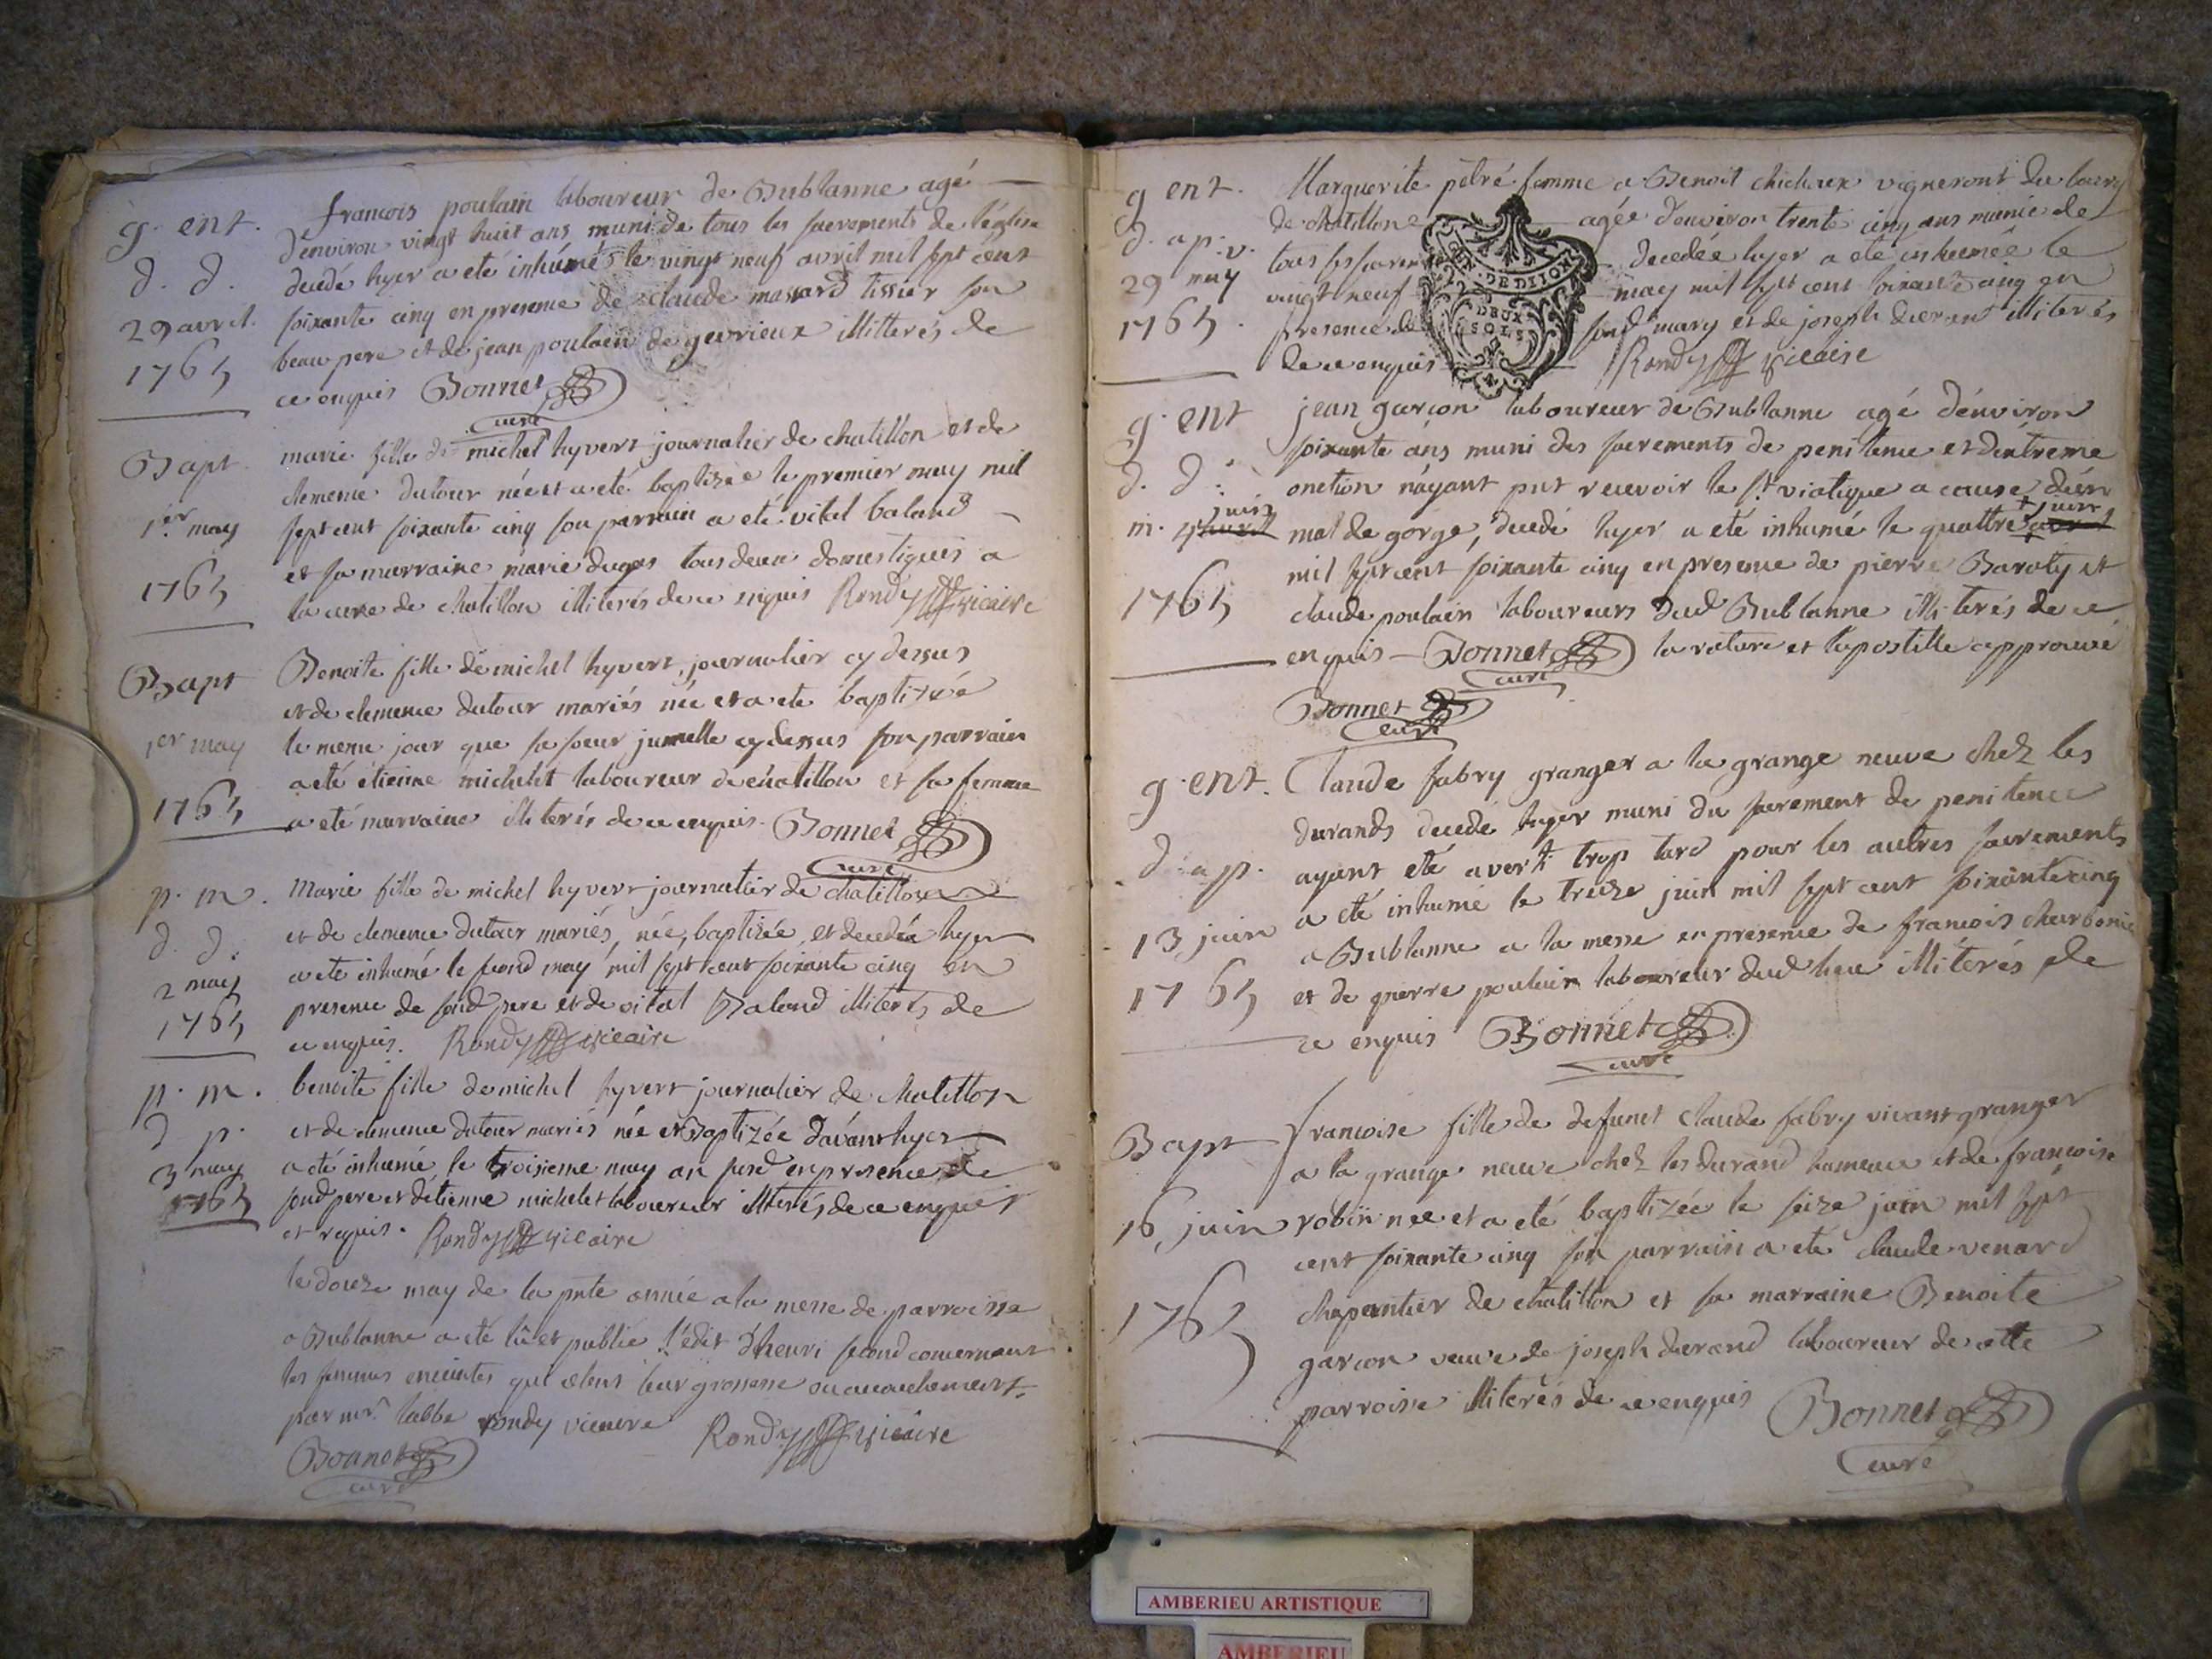 g. ent.
d. d.
29 avril.
1765
françois poulain laboureur de Bublanne agé
d'environ vingt huit ans muni de tous les sacrements de l'église
decedé hyer a eté inhumé le vingt neuf avril mil sept cent
soixante cinq en presence de claude massard tissier son
beau pere et de jean poulain de gevrieux illitterés de
ce enquis Bonnet
curé
Bapt.
1er may
1765
marie fille de michel hyvert journalier de chatillon et de
clemence dutour née et a eté baptizée le premier may mil
sept cent soixante cinq son parrain a eté vital baland
et sa marraine marie dugas tous deux domestiques a
la cure de chatillon illiterés de ce enquis Rondy vicaire
Bapt
1er may
1765
Benoite fille de michel hyvert, journalier cy dessus
et de clemence dutour mariés née et a eté baptizée
le meme jour que sa soeur jumelle cy dessus son parrain
a eté etienne michelet laboureur de chatillon et sa femme
a eté marraine illiterés de ce enquis. Bonnet
curé
p. m.
d. d.
2 may
1765
Marie fille de michel hyvert journalier de chatillon
et de clemence dutour mariés, née, baptizée et decedée hyer
a eté inhumé le second may mil sept cent soixante cinq en
presence de sond pere et de vital Baland illiterés de
ce enquis. Rondy vicaire
p. m.
d p.
3 may
1765
benoite fille de michel hyvert journalier de chatillon
et de clemence dutour mariés née et Baptizée d'avant hyer
a eté inhumée le troisieme may an susd en presence de
sond pere et d'etienne michelet laboureur illiterés de ce enquis
et requis. Rondy vicaire
le douze may de la pnte année a la messe de parroisse
a Bublanne a eté lû et publié l'édit d'henri second concernant
les femmes enceintes qui celent leur grossesse ou accouchement
par mr. labbe rondy vicaire Rondy vicaire
Bonnet
curé
g ent.
d. ap. v.
29 may
1765.
Marguerite petré femme a Benoit chicheux vigneront du
de chatillon agée d'environ trente cinq ans munie de
tous les sacrem decedée hyer a eté inhumée le
vingt neuf may mil sept cent soixante cinq en
presence de sond mary et de joseph durant illiterés
de ce enquis Rondy vicaire
GEN. DE DIJON
DEUX
SOLS
g. ent
d. d.
m. 4 juin avril
1765
jean garçon laboureur de Bublanne agé d'environ
soixante ans muni des sacrements de penitence et d'extreme
onction n'ayant put recevoir le st viatique a cause d'un
mal de gorge, decedé hyer a eté inhumé le quattre avril + juin
mil sept cent soixante cinq en presence de pierre Baroty et
claude poulain laboureurs dud Bublanne illiterés de ce
enquis - Bonnet la rature et l'apostille approuvé
curé
Bonnet
curé
g. ent.
d. ap.
13 juin
1765
Claude fabry granger a la grange neuve chez les
durands decedé hyer muni du sacrement de penitence
ayant eté averti trop tard pour les autres sacrements
a eté inhumé le treize juin mil sept cent soixante cinq
a Bublanne a la messe en presence de francois
et de pierre poulain laboureur dud lieu illiterés de
ce enquis Bonnet
curé
Bapt
16 juin
1765
francoise fille de defunct Claude fabry vivant granger
a la grange neuve chez les durand hameau et de francoise
robin née et a eté baptizée le seize juin mil sept
cent soixante cinq son parrain a eté claude venard
chapentier de chatillon et sa marraine Benoite
garcon veuve de joseph durand laboureur de cette
parroisse illiterés de ce enquis Bonnet
curé
AMBERIEU ARTISTIQUE
AMBERIEU